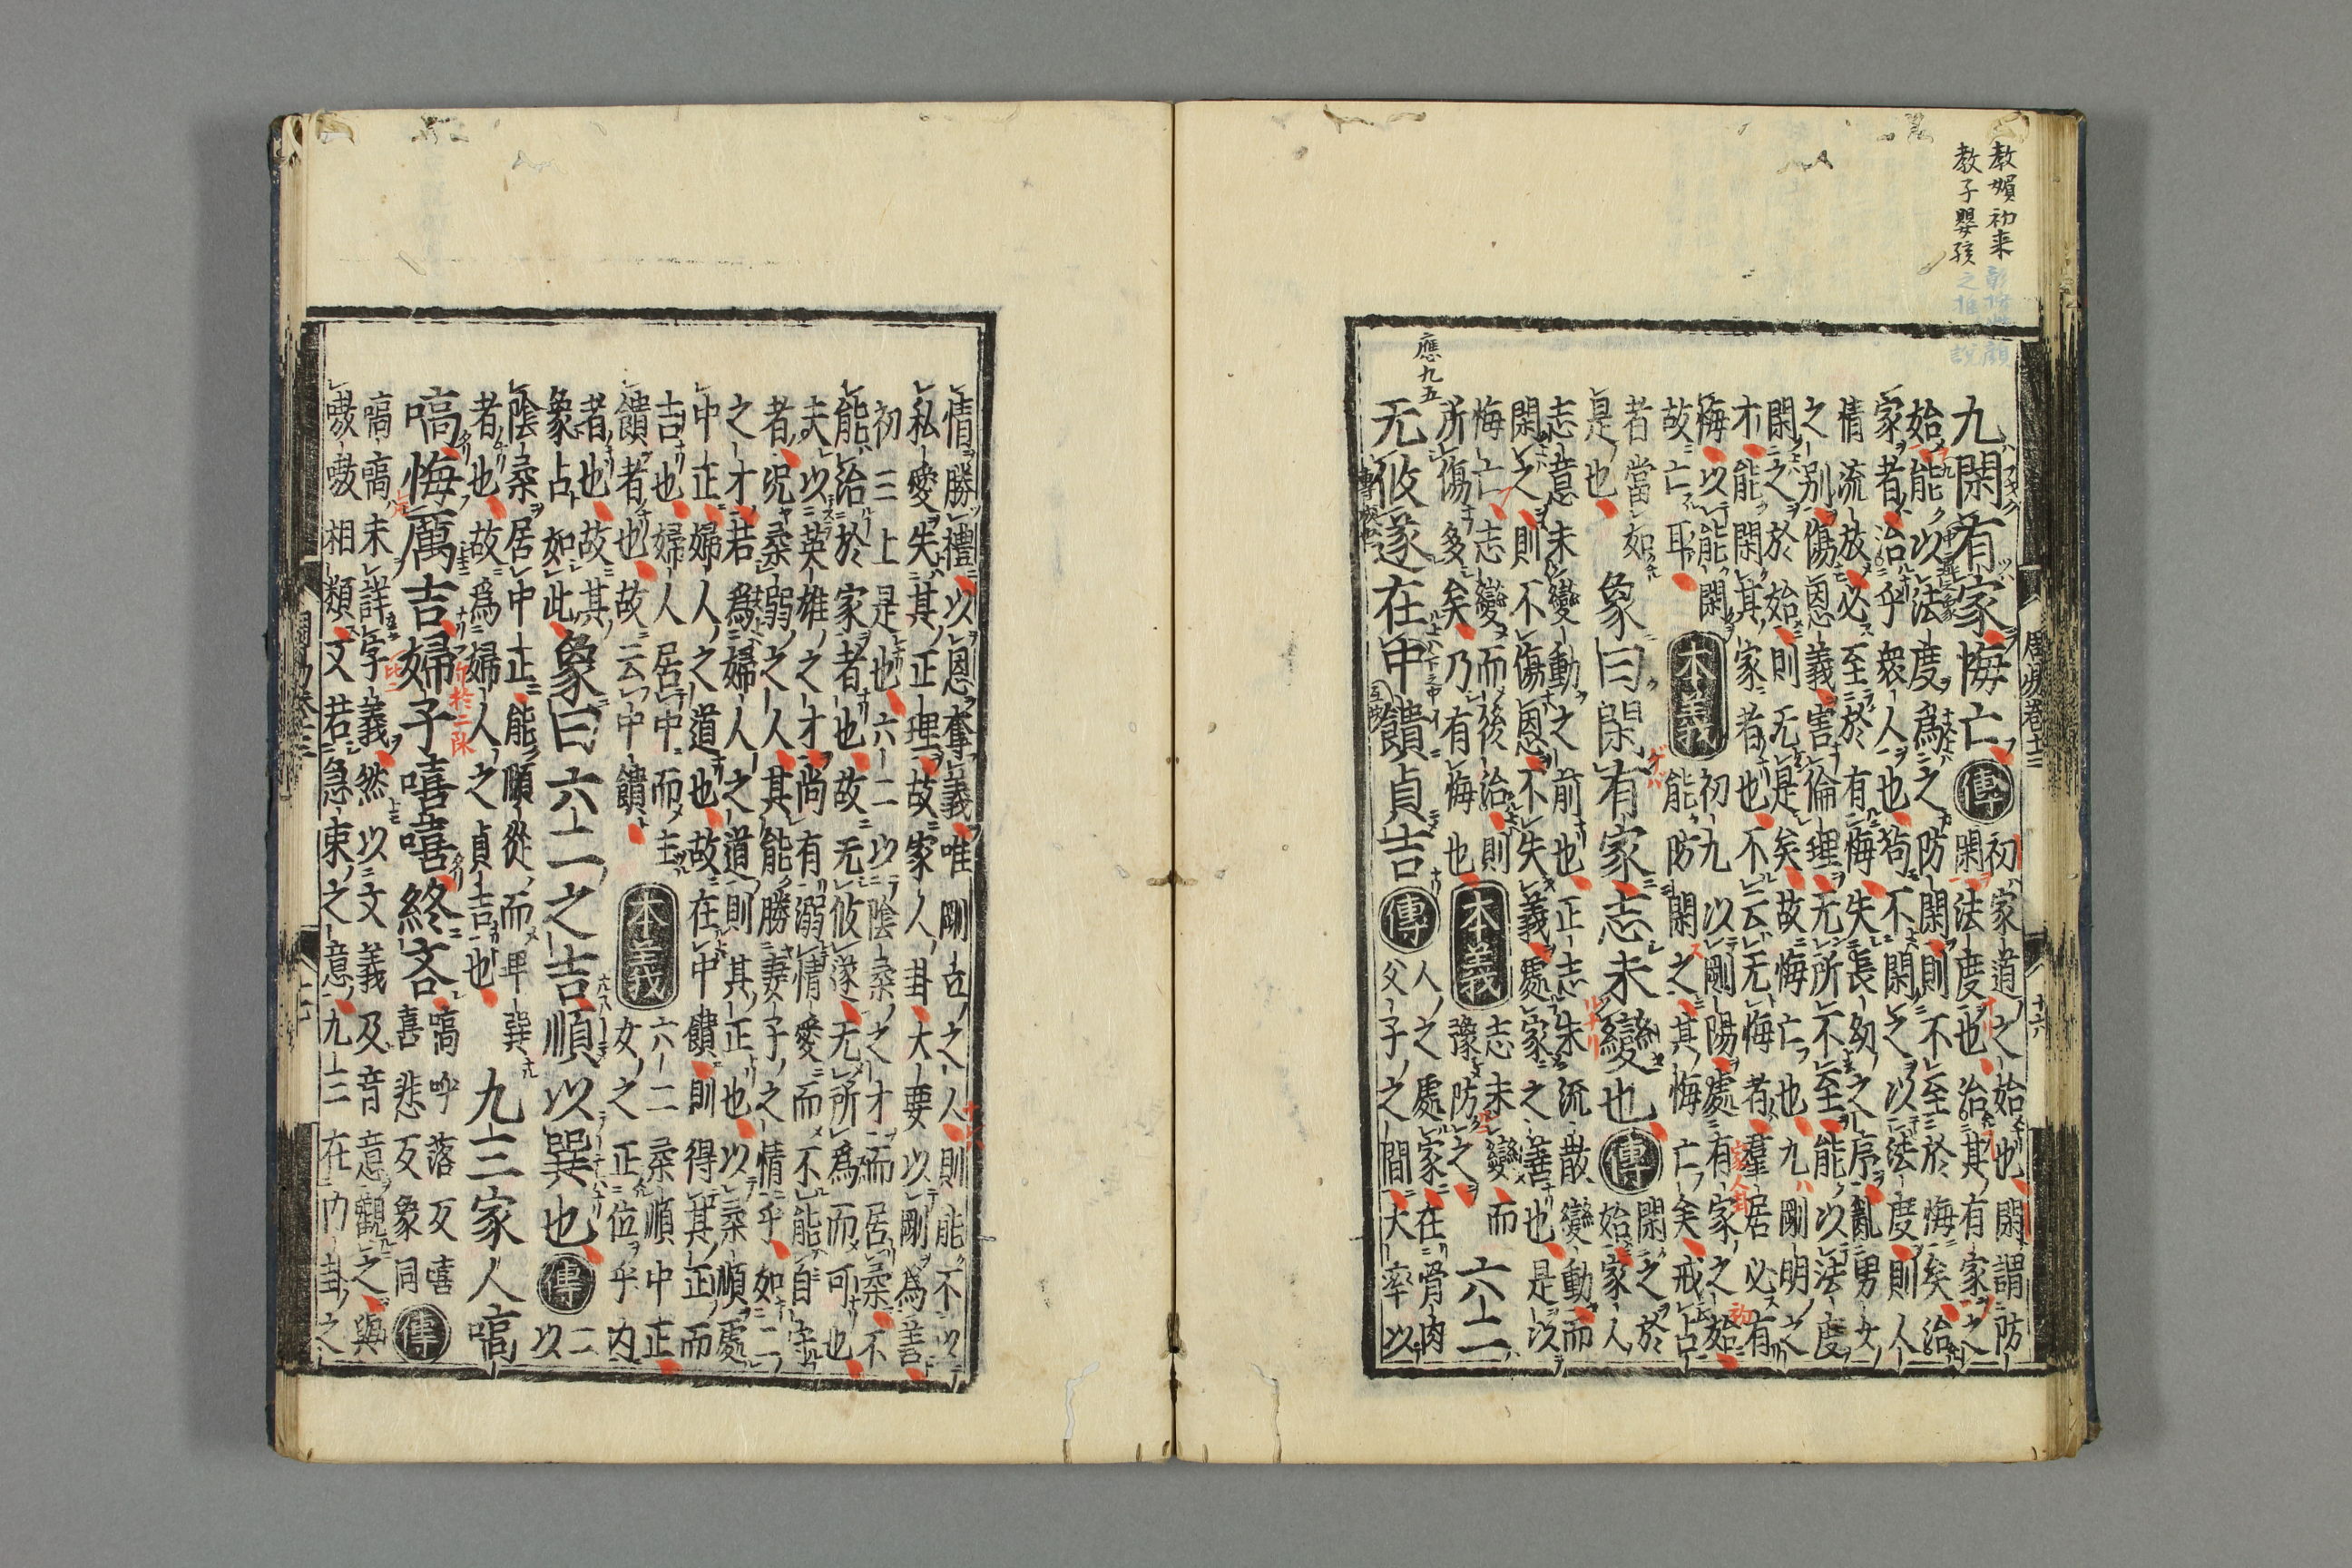 教媍初来
教子嬰孩
周易卷十三
十六
九閑有家悔亡傳初家道之始也閑謂防
閑法度也治其有家之
始能以法度爲之防閑則不至於悔矣治
家者治乎衆人也苟不閑之以法度則人
情流放必至於有悔失長幼之序亂男女
之別傷恩義害倫理无所不至能以法度
閑之於始則无是矣故悔亡也九剛明之
才能閑其家者也不云无悔者羣居必有
悔以能閑
故亡耳本義初九以剛陽處有家之始
能防閑之其悔亡矣戒占
者當如
是也象曰閑有家志未變也傳閑之於
始家人
志意未變動之前也正志未流散變動而
閑之則不傷恩不失義處家之善也是以
悔亡志變而後治則
所傷多矣乃有悔也本義志未變而
豫防之六二
應九五
无攸遂在中饋貞吉傳人之處家在骨肉
父子之間大率以
情勝禮以恩奪義唯剛立之人則能不以
私愛失其正理故家人卦大要以剛爲善
初三上是也六二以陰柔之才而居柔不
能治於家者也故无攸遂无所爲而可也
夫以英雄之才尚有溺情愛而不能自守
者況柔弱之人其能勝妻子之情乎如二
之才若爲婦人之道則其正也以柔順處
中正婦人之道也故在中饋則得其正而
吉也婦人居中而主
饋者也故云中饋本義六二柔順中正
女之正位乎内
者也故其
象占如此象曰六二之吉順以巽也傳二
以
陰柔居中正能順從而卑巽
者也故爲婦人之貞吉也九三家人嗃
嗃悔厲吉婦子嘻嘻終吝嗃呼落反嘻
喜悲反象同傳
嗃嗃未詳字義然以文義及音意觀之與
嗷嗷相類又若急束之意九三在内卦之